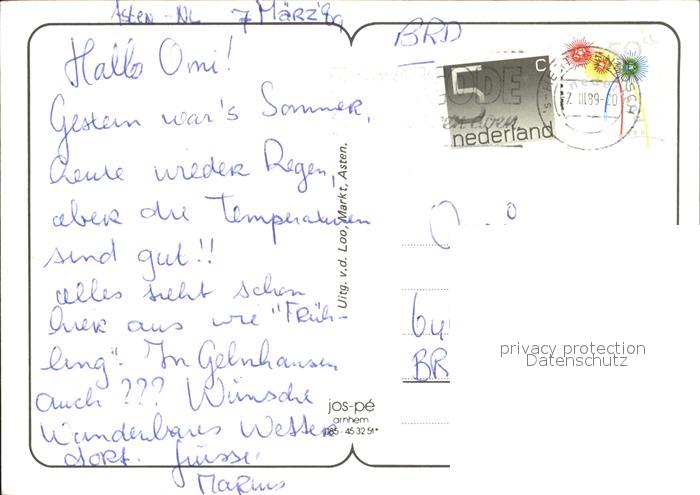 Asten - NL 7 März '89
Hallo Omi!
Gestern war's Sommer,
heute wieder Regen,
aber die Temperaturen
sind gut!!
alles sieht schon
hier aus wie "Früh-
ling". In Gelnhausen
auch ??? Wünsche
Wunderbares Wetter
dort. Grüsse
Marius
Uitg. v.d. Loo, Markt, Asten.
jos-pé
arnhem
085-45 32 51*
BRD
nederland
7. III.89
BR
privacy protection
Datenschutz